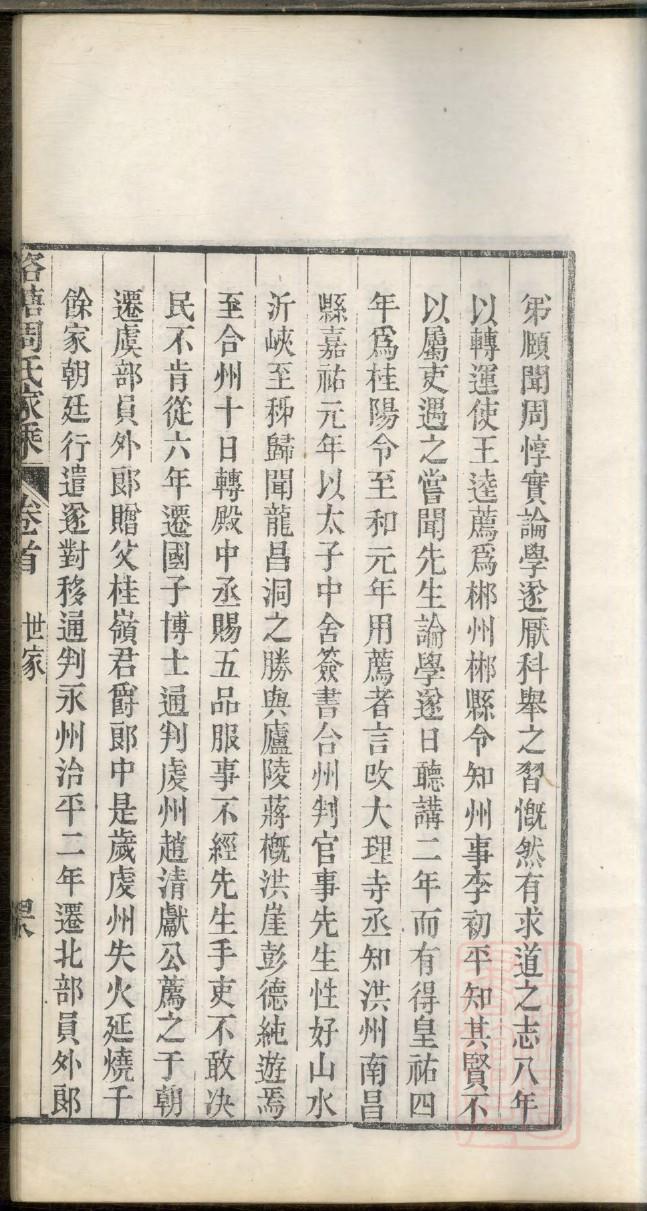 弟願聞周惇實論學遂厭科舉之習慨然有求道之志八年
以轉運使王逵薦爲郴州郴縣令知州事李初平知其賢不
以屬吏遇之嘗聞先生論學遂日聽講二年而有得皇祐四
年爲桂陽令至和元年用薦者言改大理寺丞知洪州南昌
縣嘉祐元年以太子中舍簽書合州判官事先生性好山水
沂峽至秭歸聞龍昌洞之勝與廬陵蔣概洪崖彭德純遊焉
至合州十日轉殿中丞賜五品服事不經先生手吏不敢决
民不肯從六年遷國子博士通判虔州趙清獻公薦之于朝
遷虞部員外郞贈父桂嶺君爵郞中是歲虔州失火延燒千
餘家朝廷行遣遂對移通判永州治平二年遷北部員外郞
周氏家乘 卷首 世家